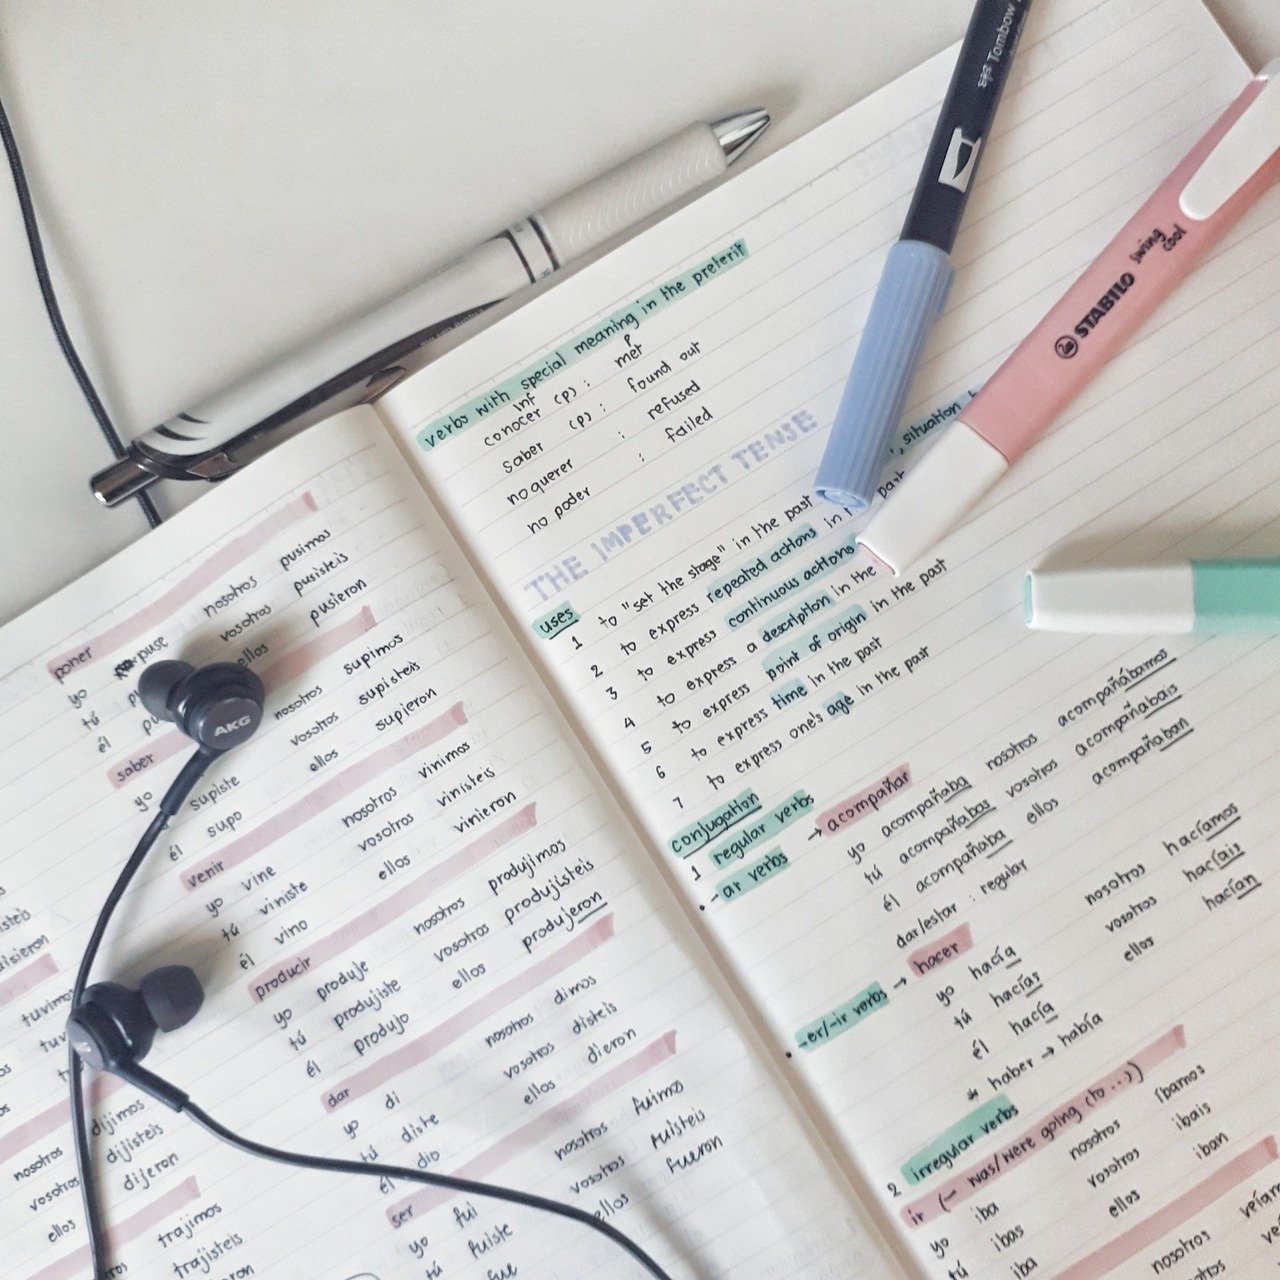 verbs with special meaning in the preterit
inf P
conocer (p) : met
saber (p) : found out
no querer : refused
no poder : failed
THE IMPERFECT TENSE
uses
, situation
1 to "set the stage" in the past
2 to express repeated actions in past
3 to express continuous actions
4 to express a description in the
5 to express point of origin in the past
6 to express time in the past
7 to express one's age in the past
conjugation
1 regular verbs
• -ar verbs → acompañar
yo acompañaba nosotros acompañábamos
tú acompañabas vosotros acompañabais
él acompañaba ellos acompañaban
dar/estar : regular
• -er/-ir verbs → hacer
yo hacía nosotros hacíamos
tú hacías vosotros hacíais
él hacía ellos hacían
* haber → había
2 irregular verbs
ir (→ was/were going (to ...))
yo iba nosotros íbamos
tú ibas vosotros ibais
iba ellos iban
nosotros
poner
yo puse nosotros pusimos
tú vosotros pusisteis
él ellos pusieron
saber
yo nosotros supimos
supiste vosotros supisteis
él supo ellos supieron
venir
yo vine nosotros vinimos
tú viniste vosotros vinisteis
él vino ellos vinieron
producir
yo produje nosotros produjimos
tú produjiste vosotros produjisteis
él produjo ellos produjeron
dar
yo di nosotros dimos
tú diste vosotros disteis
él dio ellos dieron
ser
yo fui nosotros fuimos
tú fuiste vosotros fuisteis
fue ellos fueron
nosotros dijimos
vosotros dijisteis
ellos dijeron
trajimos
trajisteis
AKG
Tombow
STABILO
swing cool